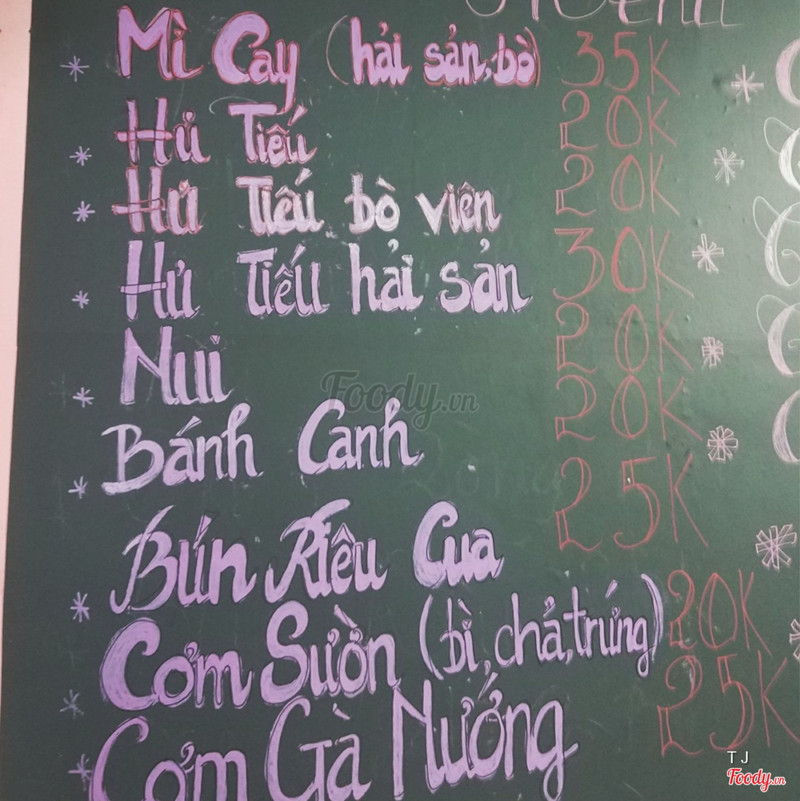 Menu
* Mì Cay (hải sản, bò) 35K
* Hủ Tiếu 20K
* Hủ Tiếu bò viên 20K
* Hủ Tiếu hải sản 30K
* Nui 20K
* Bánh Canh 20K
* Bún Riêu Cua 25K
* Cơm Sườn (bì, chả, trứng) 20K
* Cơm Gà Nướng 25K
Foody.vn
TJ
Foody.vn